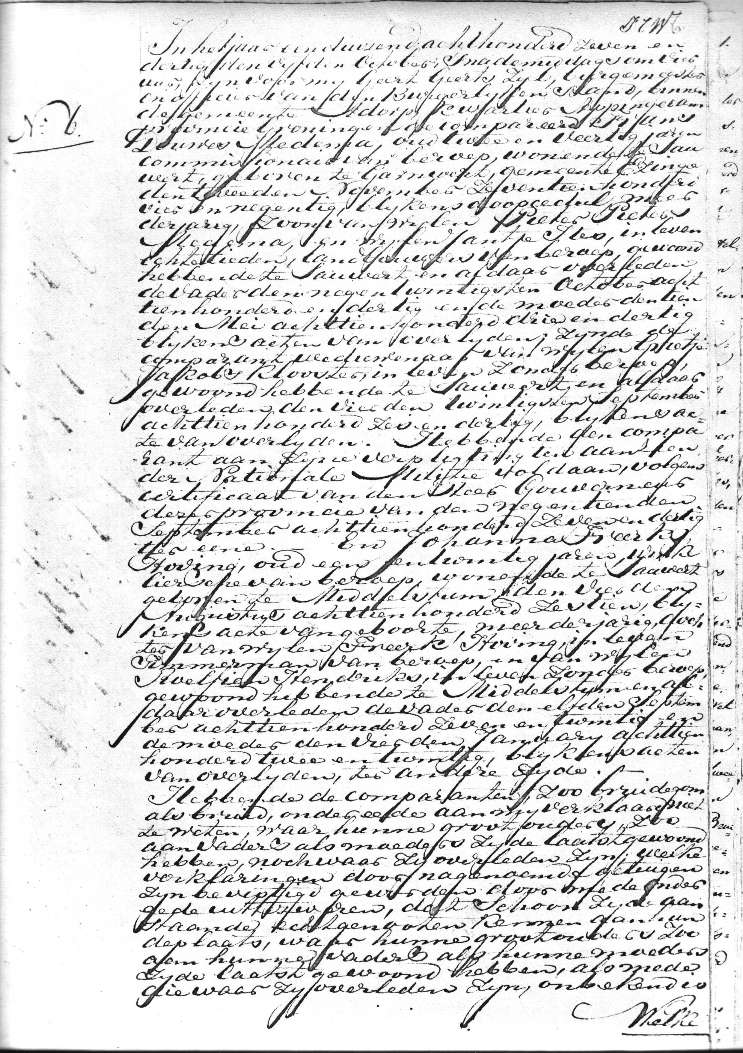 N.o 6.
In het jaar eenduizend achthonderd zeven en
dertig, den vyfden October, s'nademiddags om vier
uur, zyn voor my Geert Geerts Zyl, burgemeester
en officier van den Burgerlyken Stand, binnen
de gemeente Adorp, kwartier Appingedam
provincie Groningen gecompareerd Kryun's
Louwes Medema, oud twee en veertig jaren
commissionair van beroep, wonende te Sau
wert, geboren te Garnwert, gemeente Ezinge
den tweeden November zeventienhonderd
vier en negentig, blykens doopceduul, meer
derjarig, Zoon van wylen Pieter Pieters
Medema, en wylen Jantje Iles, in leven
echtelieden, landbouwers van beroep, gewoond
hebbende te Sauwert en aldaar overleden
de vader den negentwintigsten October acht
tienhonderd en dertig en de moeder den tien
den Mei achttienhonderd drie en dertig
blykens acten van overlyden; zynde de
comparant weduwenaar van wylen Pietje
Jakobs Klooster, in leven zonder beroep,
gewoond hebbende te Sauwert, en aldaar
overleden den vier en twintigsten September
achttienhonderd zes en dertig, blykens ac-
te van overlyden. Hebbende den compa
rant aan zyne verpligting ten aanzien
der Nationale Militie voldaan, volgens
certificaat van den Heer Gouverneur
dezer provincie van den negentienden
September achttienhonderd zeven en dertig
ter eene — En Johanna Freerks
Hoving, oud een en twintig jaren, wink
liersche van beroep, wonende te Sauwert
geboren te Middelstum den vierden
Augustus achttienhonderd zestien, bly-
kens acte van geboorte, meerderjarig, doch
ter van wylen Freerk Hoving, in leven
Timmerman van beroep, en van wylen
Roelfien Hendriks, in leven zonder beroep,
gewoond hebbende te Middelstum en al-
daar overleden de vader den elfden Septem
ber achttienhonderd zeven en twintig en
de moeder den vierden January achttien
honderd twee en twintig, blykens acten
van overlyden, ter andere zyde.
Hebbende de comparanten, zoo bruidegom
als bruid, onder eede aan my verklaard niet
te weten, waar hunne grootouders, zoo
aan vaders als moeders zyde laatst gewoond
hebben, noch waar zy overleden zyn; welke
verklaringen door nagenoemde getuigen
zyn bevestigd geworden door mede onder
eede uit te voeren, dat schoon zy de aan
staande echtgenooten kennen, aan hun
de plaats, waar hunne grootouders zoo
aan hunne vaders als hunne moeders
zyde laatst gewoond hebben, als mede
die waar zy overleden zyn, onbekend is
Welke